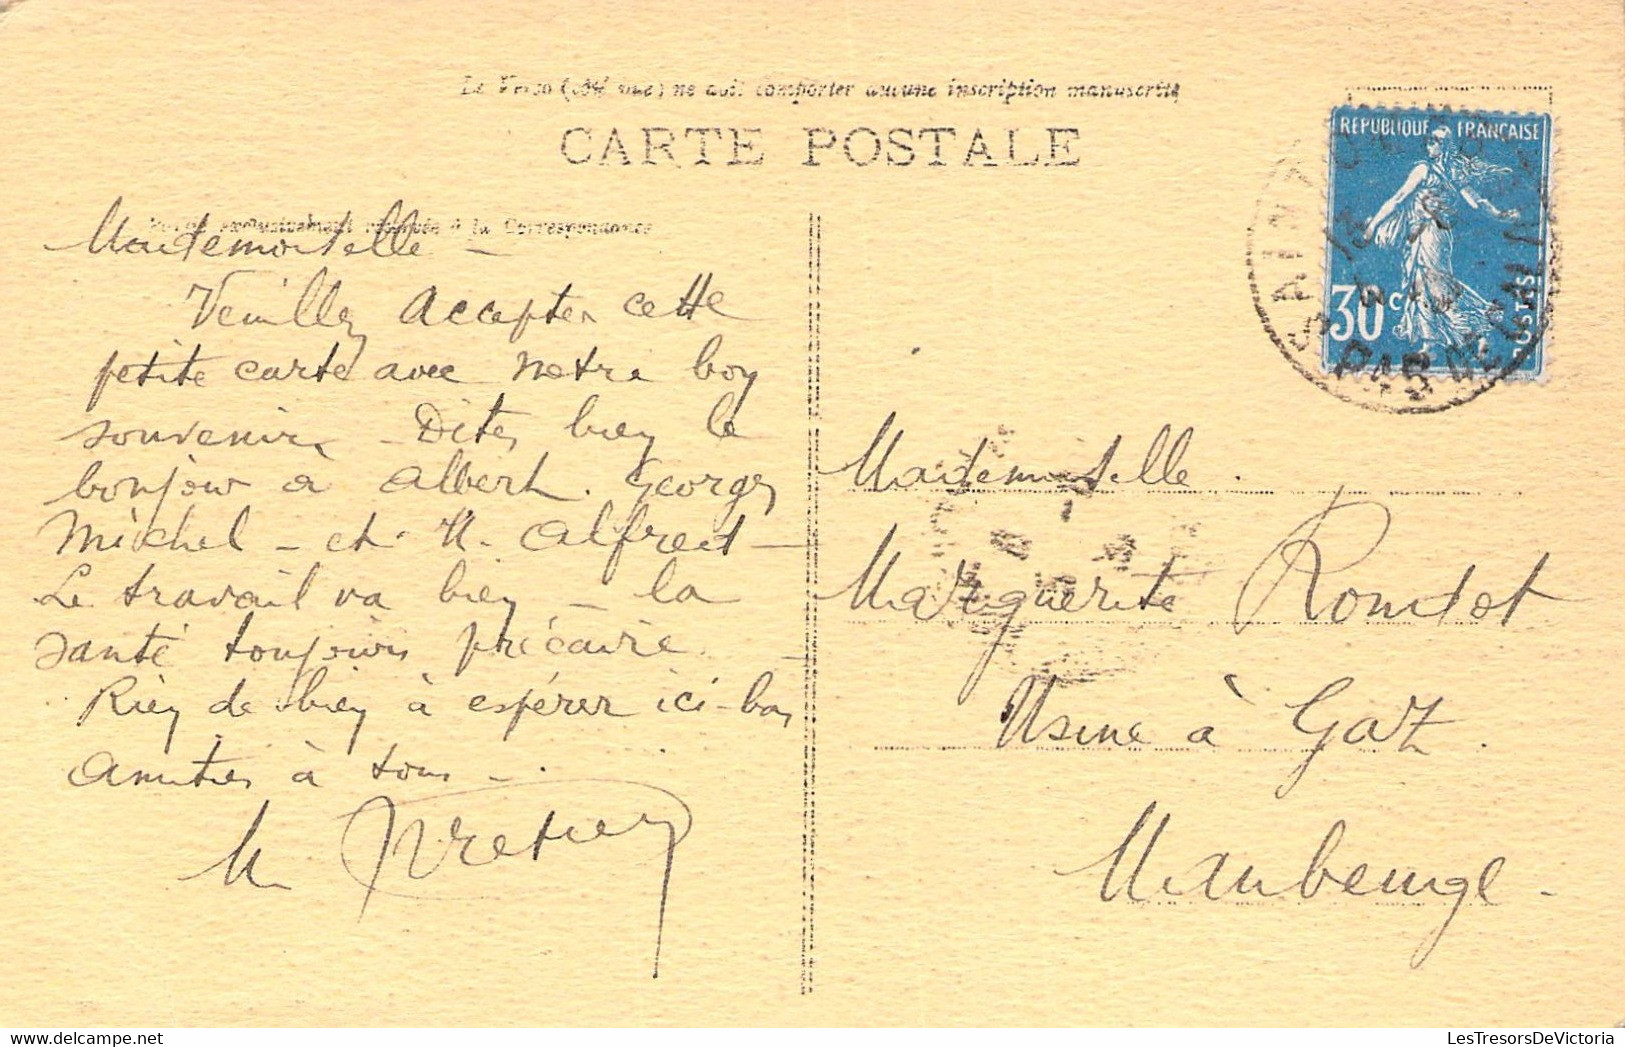 Le Verso (côté vue) ne doit comporter aucune inscription manuscrite
CARTE POSTALE
Partie exclusivement réservée à la Correspondance
Mademoiselle -
Veuillez accepter cette
petite carte avec notre bon
souvenir - Dites bien le
bonjour à Albert. Georges
Michel - et M. Alfred -
Le travail va bien - la
santé toujours précaire. -
Rien de bien à espérer ici-bas
Amitiés à tous -.
M
REPUBLIQUE FRANÇAISE
30 c
POSTES
SAINT
PAS DE
Mademoiselle.
Marguerite Rondot
Usine à Gaz.
Maubeuge -
LesTresorsDeVictoria.com